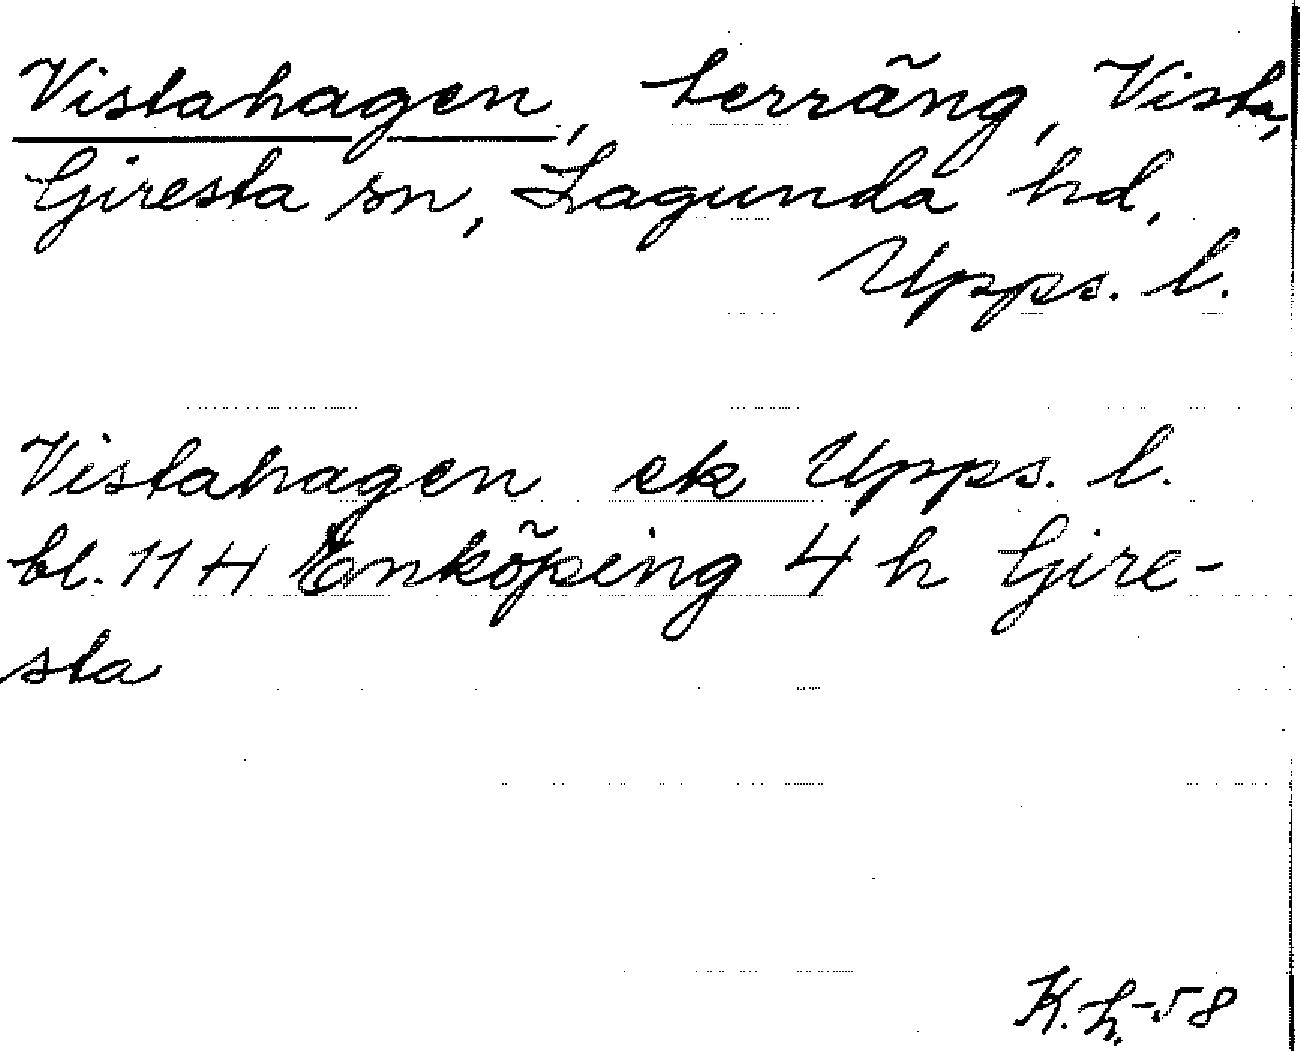 Vistahagen, terräng, Vista,
Giresta sn, Lagunda hd,
Upps. l.
Vistahagen ek Upps. l.
bl. 114 Enköping 4 h Gire-
sta
K. L. -58